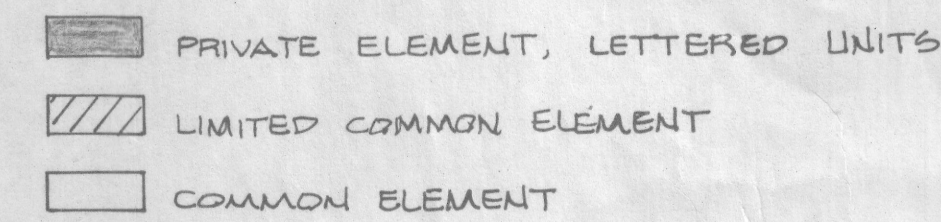 PRIVATE ELEMENT, LETTERED UNITS
LIMITED COMMON ELEMENT
COMMON ELEMENT